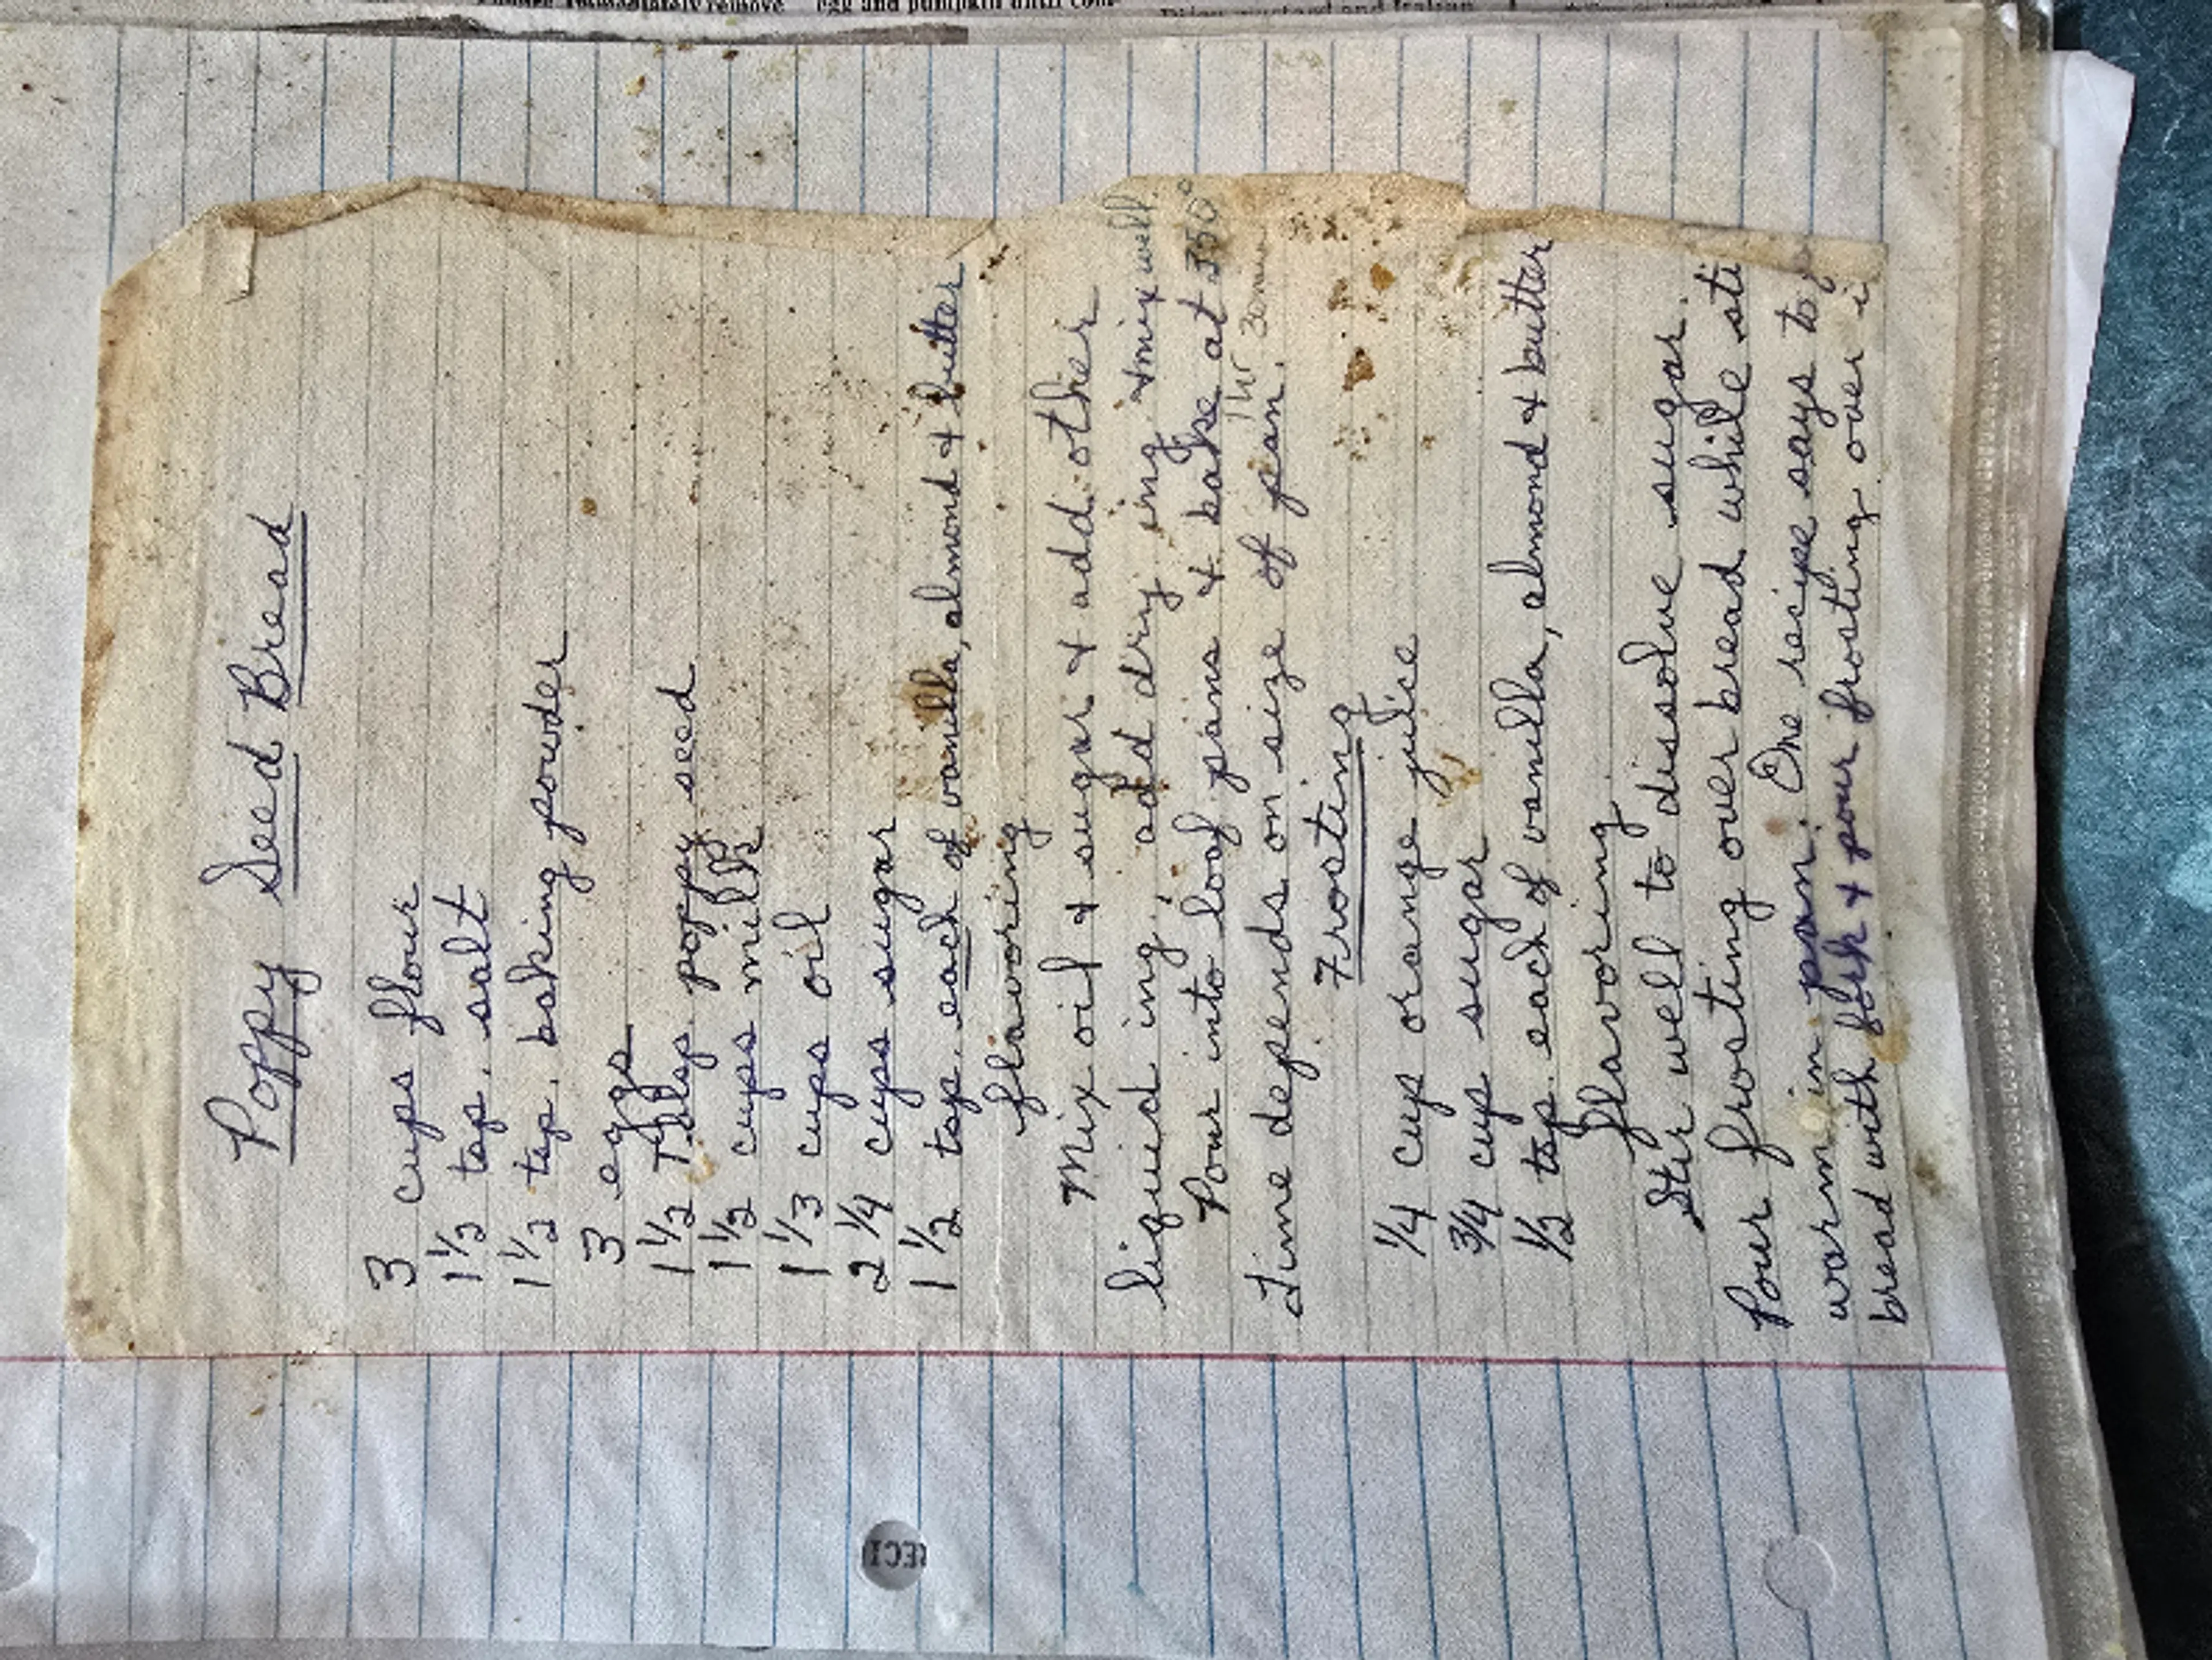 Poppy Seed Bread
3 cups flour
1 1/2 tsp. salt
1 1/2 tsp. baking powder
3 eggs
1 1/2 Tblsp. poppy seed
1 1/2 cups milk
1 1/3 cups oil
2 1/4 cups sugar
1 1/2 tsp. each of vanilla, almond & butter
flavoring
Mix oil & sugar & add other
liquid ing., add dry ing. & mix well.
Pour into loaf pans & bake at 350°
1 hr 30 min
Time depends on size of pan.
Frosting
1/4 cup orange juice
3/4 cup sugar
1/2 tsp. each of vanilla, almond & butter
flavoring
Stir well to dissolve sugar.
Pour frosting over bread while sti
warm in pan. One recipe says to
bread with fork & pour frosting over i
RECI
egg and pumpkin until com-
immediately remove